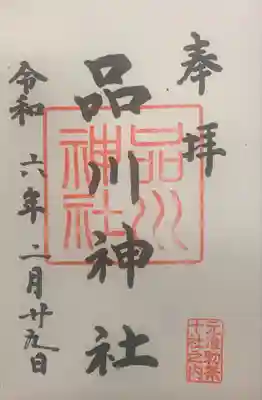 奉拝
品川神社
品川神社
令和六年二月廿九日
元准勅祭
十社之内